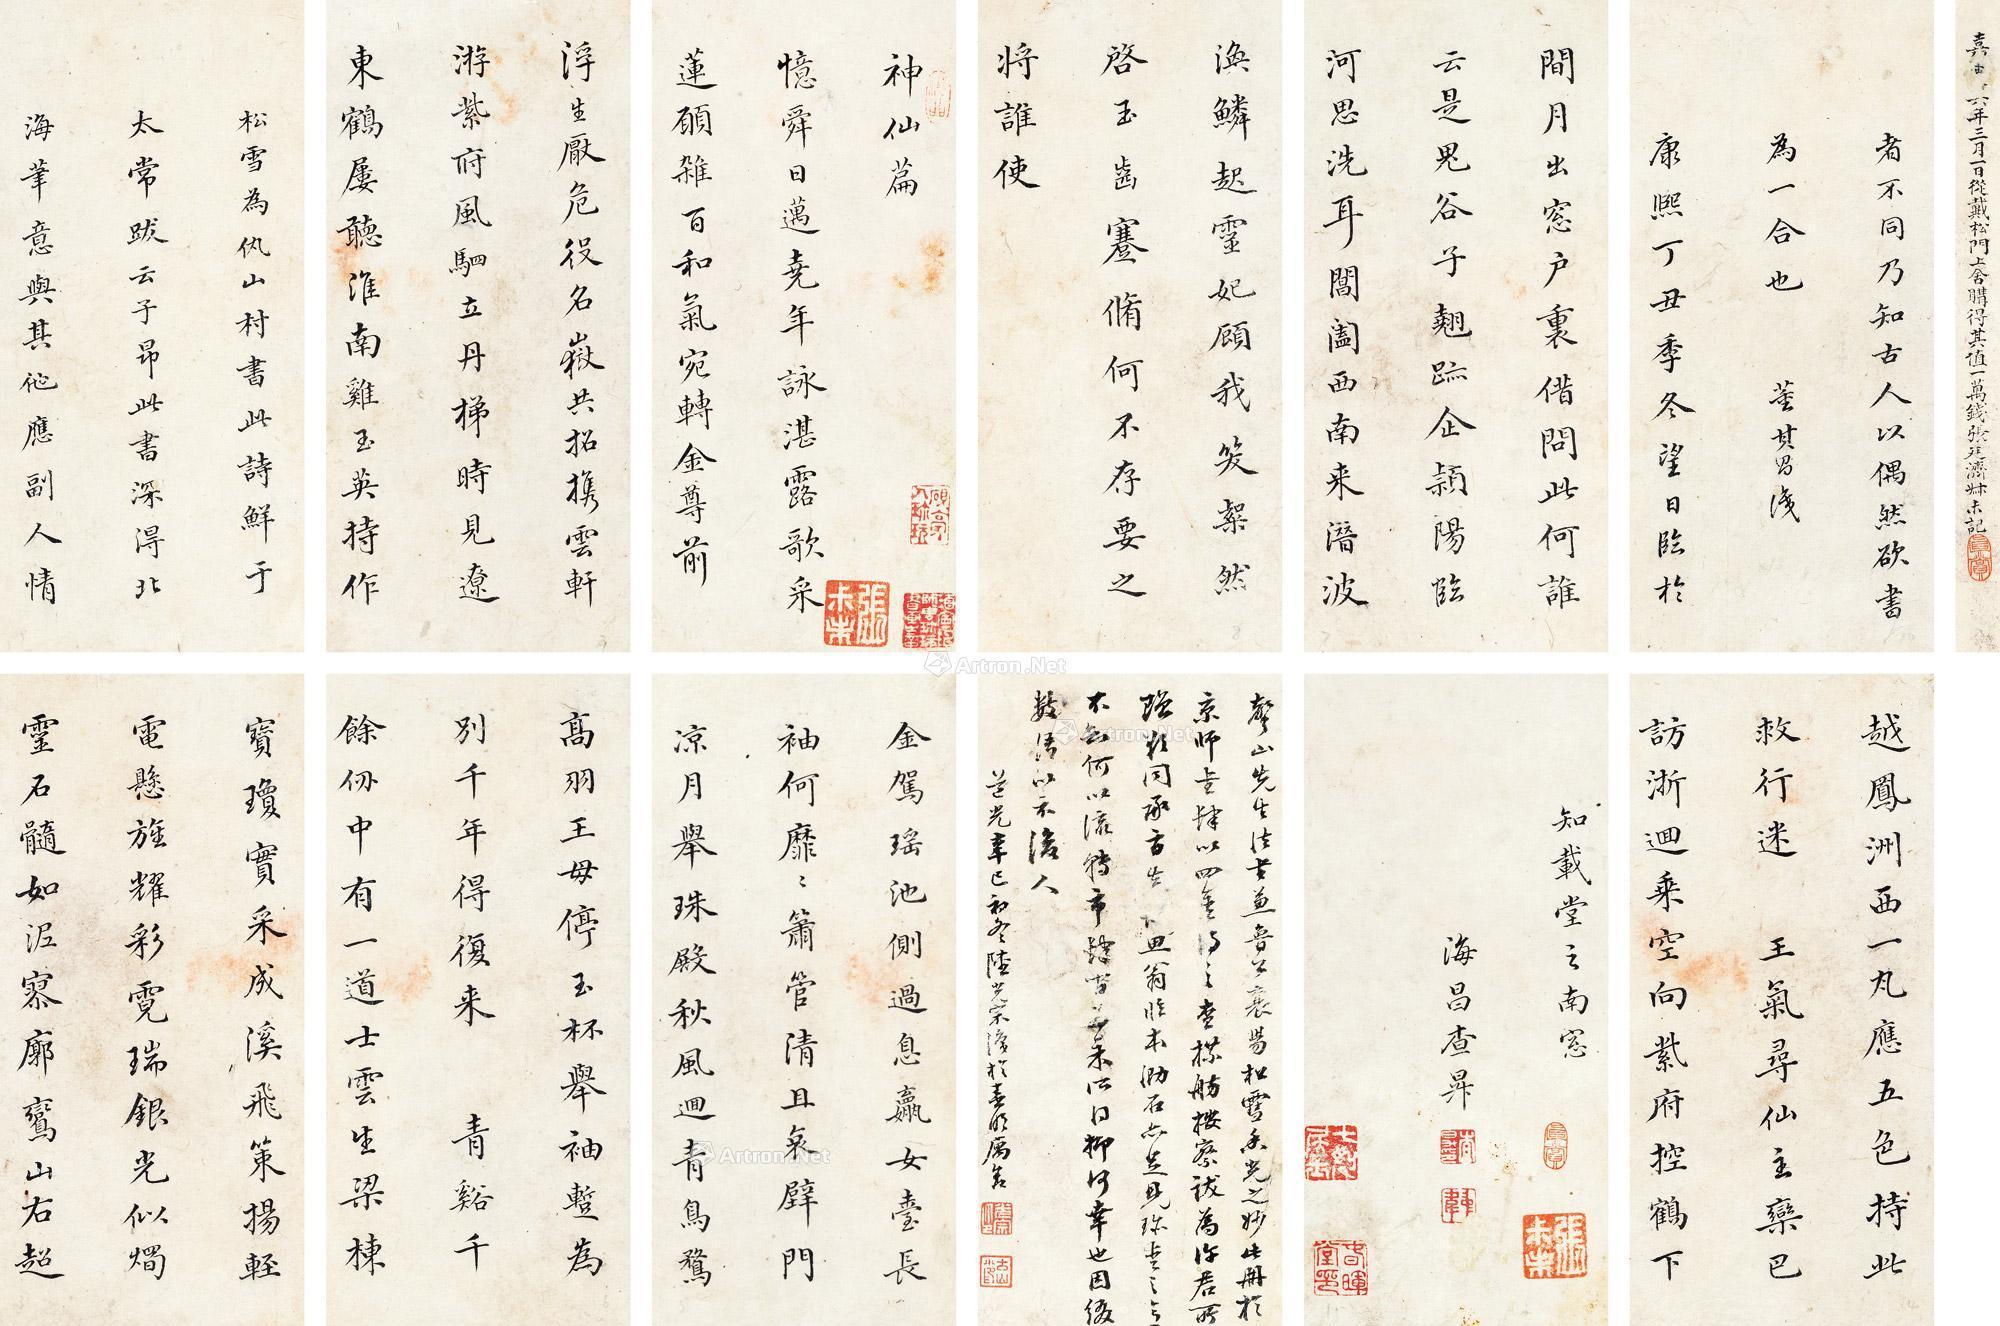 嘉慶六年三月一日從戴松門上舍購得其值一萬錢張廷濟叔未記
者不同乃知古人以偶然欲書
為一合也 董其昌識
康熙丁丑季冬望日臨於
間月出窓户裏借問此何誰
云是鬼谷子翹跡企潁陽臨
河思洗耳閶闔西南来潛波
渙鱗起靈妃顧我笑粲然
啓玉齒蹇脩何不存要之
将誰使
神仙篇
憶舜日邁堯年詠湛露歌采
蓮願雜百和氣宛轉金尊前
浮生厭危役名嶽共招携雲軒
游紫府風駟立丹梯時見遼
東鶴屢聽淮南雞玉英持作
松雪為仇山村書此詩鮮于
太常跋云子昂此書深得北
海筆意與其他應副人情
越鳳洲西一丸應五色持此
救行迷 王氣尋仙主欒巴
訪浙迴乘空向紫府控鶴下
知載堂之南窓
海昌查昇
聲山先生法書兼魯公襄陽松雪香光之妙此冊於
京師書肆以四金得之查梅舫樓察跋為許君所
不知何以流轉市肆
數語以示後人
道光辛巳初冬陸
金駕瑶池側過息嬴女臺長
袖何靡〻簫管清且哀璧門
凉月舉珠殿秋風迴青鳥騖
高羽王母停玉杯舉袖蹔為
別千年得復来 青谿千
餘仞中有一道士雲生梁棟
寶瓊實采成溪飛策揚輕
電懸旌耀彩霓瑞銀光似燭
靈石髓如泥寥廓鸞山右超
張叔未
Artron.Net